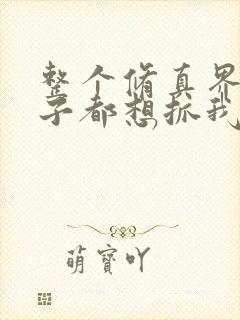 整个脩真界
子都想抓我
萌寶吖